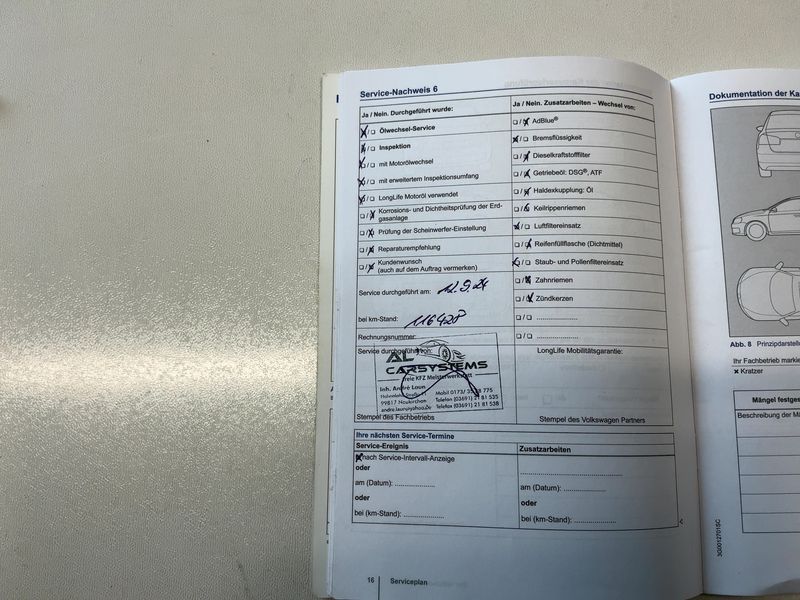 Service-Nachweis 6
Ja / Nein. Durchgeführt wurde:
Ölwechsel-Service
Inspektion
mit Motorölwechsel
mit erweitertem Inspektionsumfang
LongLife Motoröl verwendet
Korrosions- und Dichtheitsprüfung der Erd-
gasanlage
Prüfung der Scheinwerfer-Einstellung
Reparaturempfehlung
Kundenwunsch
(auch auf dem Auftrag vermerken)
Service durchgeführt am: 12.9.24
bei km-Stand: 116428
Rechnungsnummer:
Service durchgeführt von:
AL
CARSYSTEMS
freie KFZ Meisterwerkstatt
Inh. André Laun
99817 Neukirchen
Telefon (03691) 21 81 535
Telefax (03691) 21 81 538
Stempel des Fachbetriebs
Ja / Nein. Zusatzarbeiten – Wechsel von:
AdBlue®
Bremsflüssigkeit
Dieselkraftstofffilter
Getriebeöl: DSG®, ATF
Haldexkupplung: Öl
Keilrippenriemen
Luftfiltereinsatz
Reifenfüllflasche (Dichtmittel)
Staub- und Pollenfiltereinsatz
Zahnriemen
Zündkerzen
LongLife Mobilitätsgarantie:
Stempel des Volkswagen Partners
Ihre nächsten Service-Termine
Service-Ereignis
nach Service-Intervall-Anzeige
oder
am (Datum):
oder
bei (km-Stand):
Zusatzarbeiten
am (Datum):
oder
bei (km-Stand):
16 Serviceplan
Dokumentation der Ka
Abb. 8 Prinzipdarstelle
Ihr Fachbetrieb markie
× Kratzer
Mängel festges
Beschreibung der Mä
3G0012701SC